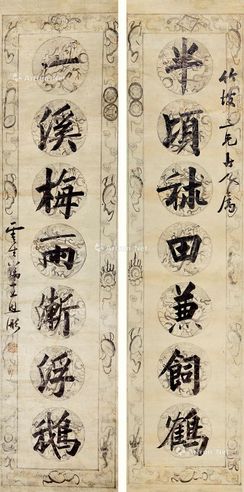 竹坡二兄大人屬
半頃秫田兼飼鶴
一溪梅雨漸浮鵝